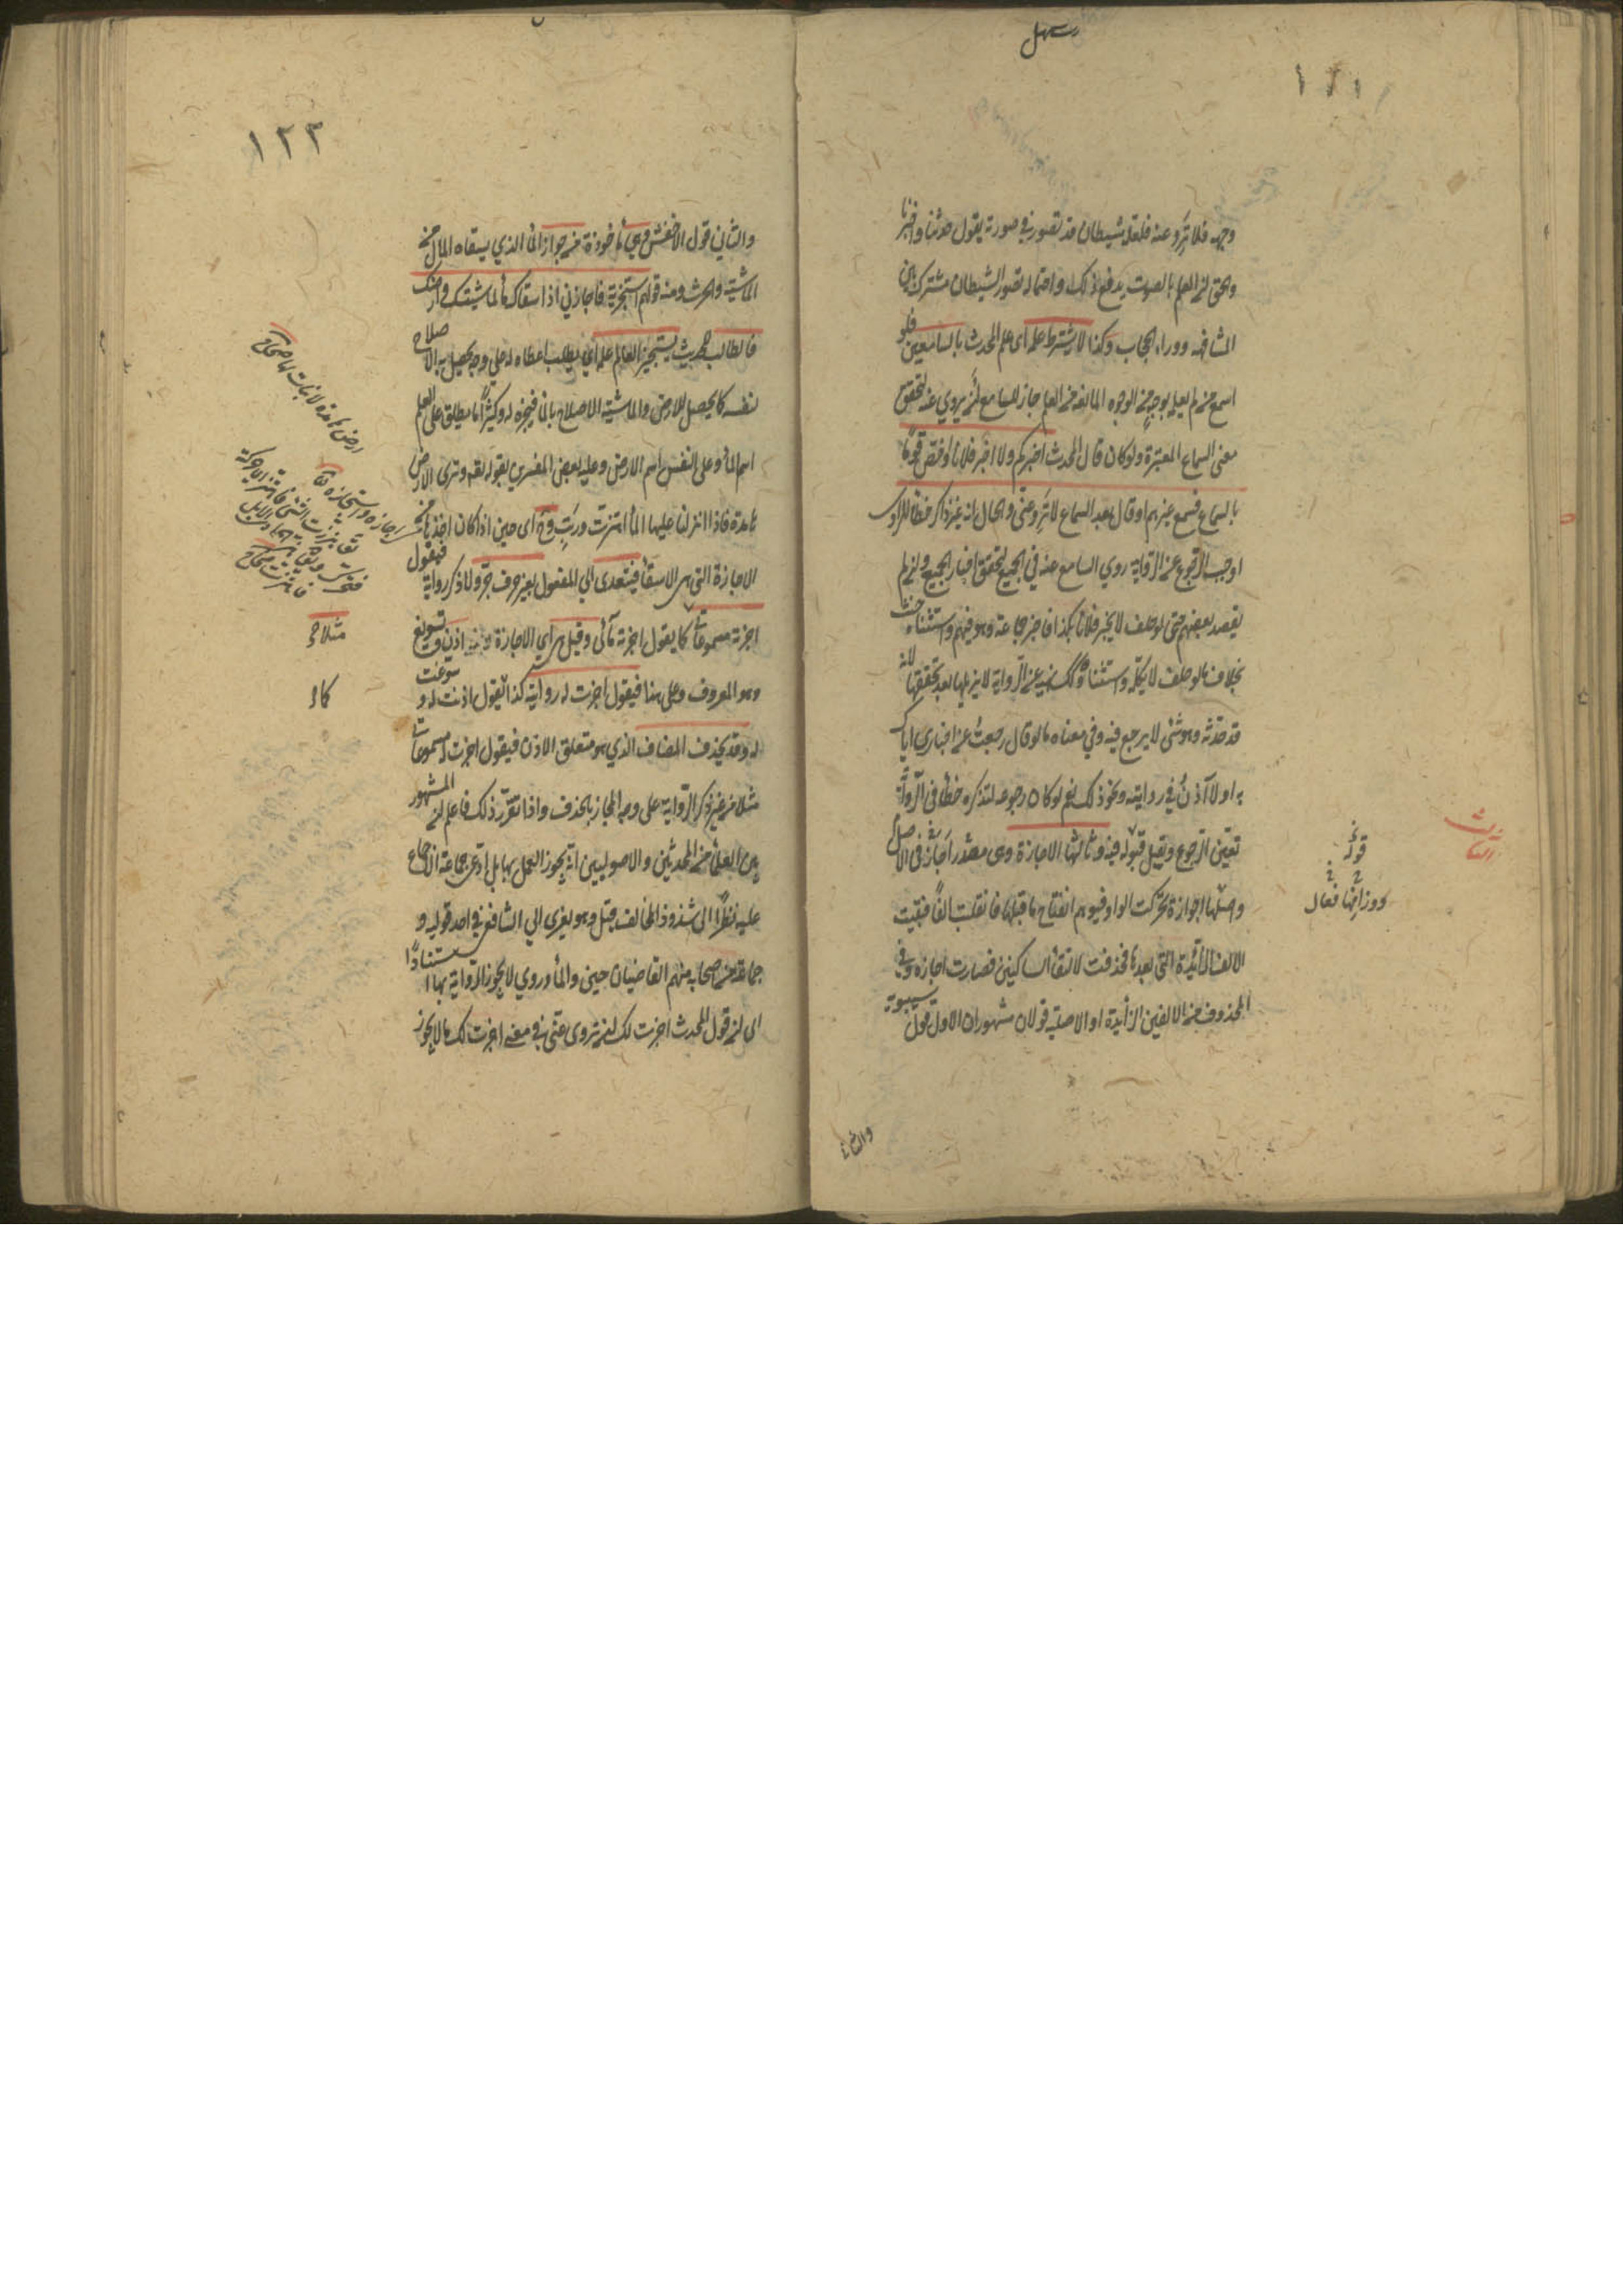 وجهه فلا ترو عنه فلعله شيطان قد تصور في صورته يقول حدثنا واخبرنا
والحق ان العلم بالصوت يدفع ذلك واحتمال تصور الشيطان مشترك بين
المشافهة ووراء الحجاب وكذا لا يشترط علمه اى علم المحدث بالسامعين فلو
اسمع من لم يعلمه بوجه من الوجوه المانعة من العلم جاز للسامع ان يروي عنه لتحقق
معنى السماع المعتبرة ولو كان قال المحدث اخبركم ولا اخبر فلانا او خص قوما
بالسماع فسمع غيرهم او قال بعد السماع لا ترو عني والحال انه غير ذاكر خطأ للراوى
اوجب الرجوع عن الرواية روي السامع عنه في الجميع لتحقق اخبار الجميع وان لم
يقصد بعضهم حتى لو حلف لا يخبر فلانا بكذا فاخبر جماعة وهو فيهم واستثناه حنث
بخلاف ما لو حلف لا يكلمه واستثناه وكذا نهيه عن الرواية لا يزيلها بعد تحققها لانه
قد حدثه وهو شئ لا يرجع فيه وفي معناه ما لو قال رجعت عن اخبارى اياك
به او لا آذن في روايته ونحو ذلك نعم لو كان رجوعه لتذكره خطأ فى الرواية
تعين الرجوع ويقبل قبوله فيه وثالثها الاجازة وهى مصدر اجاز فى الاصل
واصلها اجوازة تحركت الواو فتوهم انفتاح ما قبلها فانقلبت الفا فبقيت
الالف الزائدة التي بعدها فحذفت لالتقاء الساكنين فصارت اجازة وفي
المحذوف من الالفين الزائدة او الاصلية قولان مشهوران الاول قول سيبويه
الثالث
قوله
ووزانها فعال
والثاني
١٢٢
والثاني قول الاخفش وهي مأخوذة من جواز الماء الذي يسقاه المال من
الماشية والحرث ومنه قولهم استجزته فاجازني اذا سقاك ماء لماشيتك او ارضك
فالطالب للحديث يستجيز العالم علمه اي يطلب اعطاه له على وجه يحصل به الاصلاح
لنفسه كما يحصل للارض والماشية الاصلاح بالماء فيجيزه له وكثيرا ما يطلق على العلم
اسم الماء وعلى النفس اسم الارض وعليه بعض المفسرين بقوله تعالى وترى الارض
هامدة فاذا انزلنا عليها الماء اهتزت وربت وح اى حين اذا كان اخذها من
الاجازة التي هي الاسقاء فيتعدى الي المفعول بغير حرف جر ولا ذكر رواية فيقول
اجزته مسموعاتي كما يقول اجزته مآئى وقيل هي اي الاجازة اذن وتسويغ
وهو المعروف وعلى هذا فيقول اجزت له رواية كذا كما يقول اذنت له و سوغت
له وقد يحذف المضاف الذي هو متعلق الاذن فيقول اجزت له مسموعاتي
مثلا من غير ذكر الرواية على وجه المجاز بالحذف واذا تقرر ذلك فاعلم ان المشهور
بين العلماء من المحدثين والاصوليين انه يجوز العمل بها بل ادعى جماعة الاجماع
عليه نظرا الى شذوذ المخالف وقيل وهو يعزى الي الشافعي في احد قوليه و
جماعة من اصحابه منهم القاضيان حسين والماوردي لا يجوز الرواية بها استنادا
الى ان قول المحدث اجزت لك ان تروى عني في معنى اجزت لك ما لا يجوز
ارض هامدة لا نبات بها صحاح